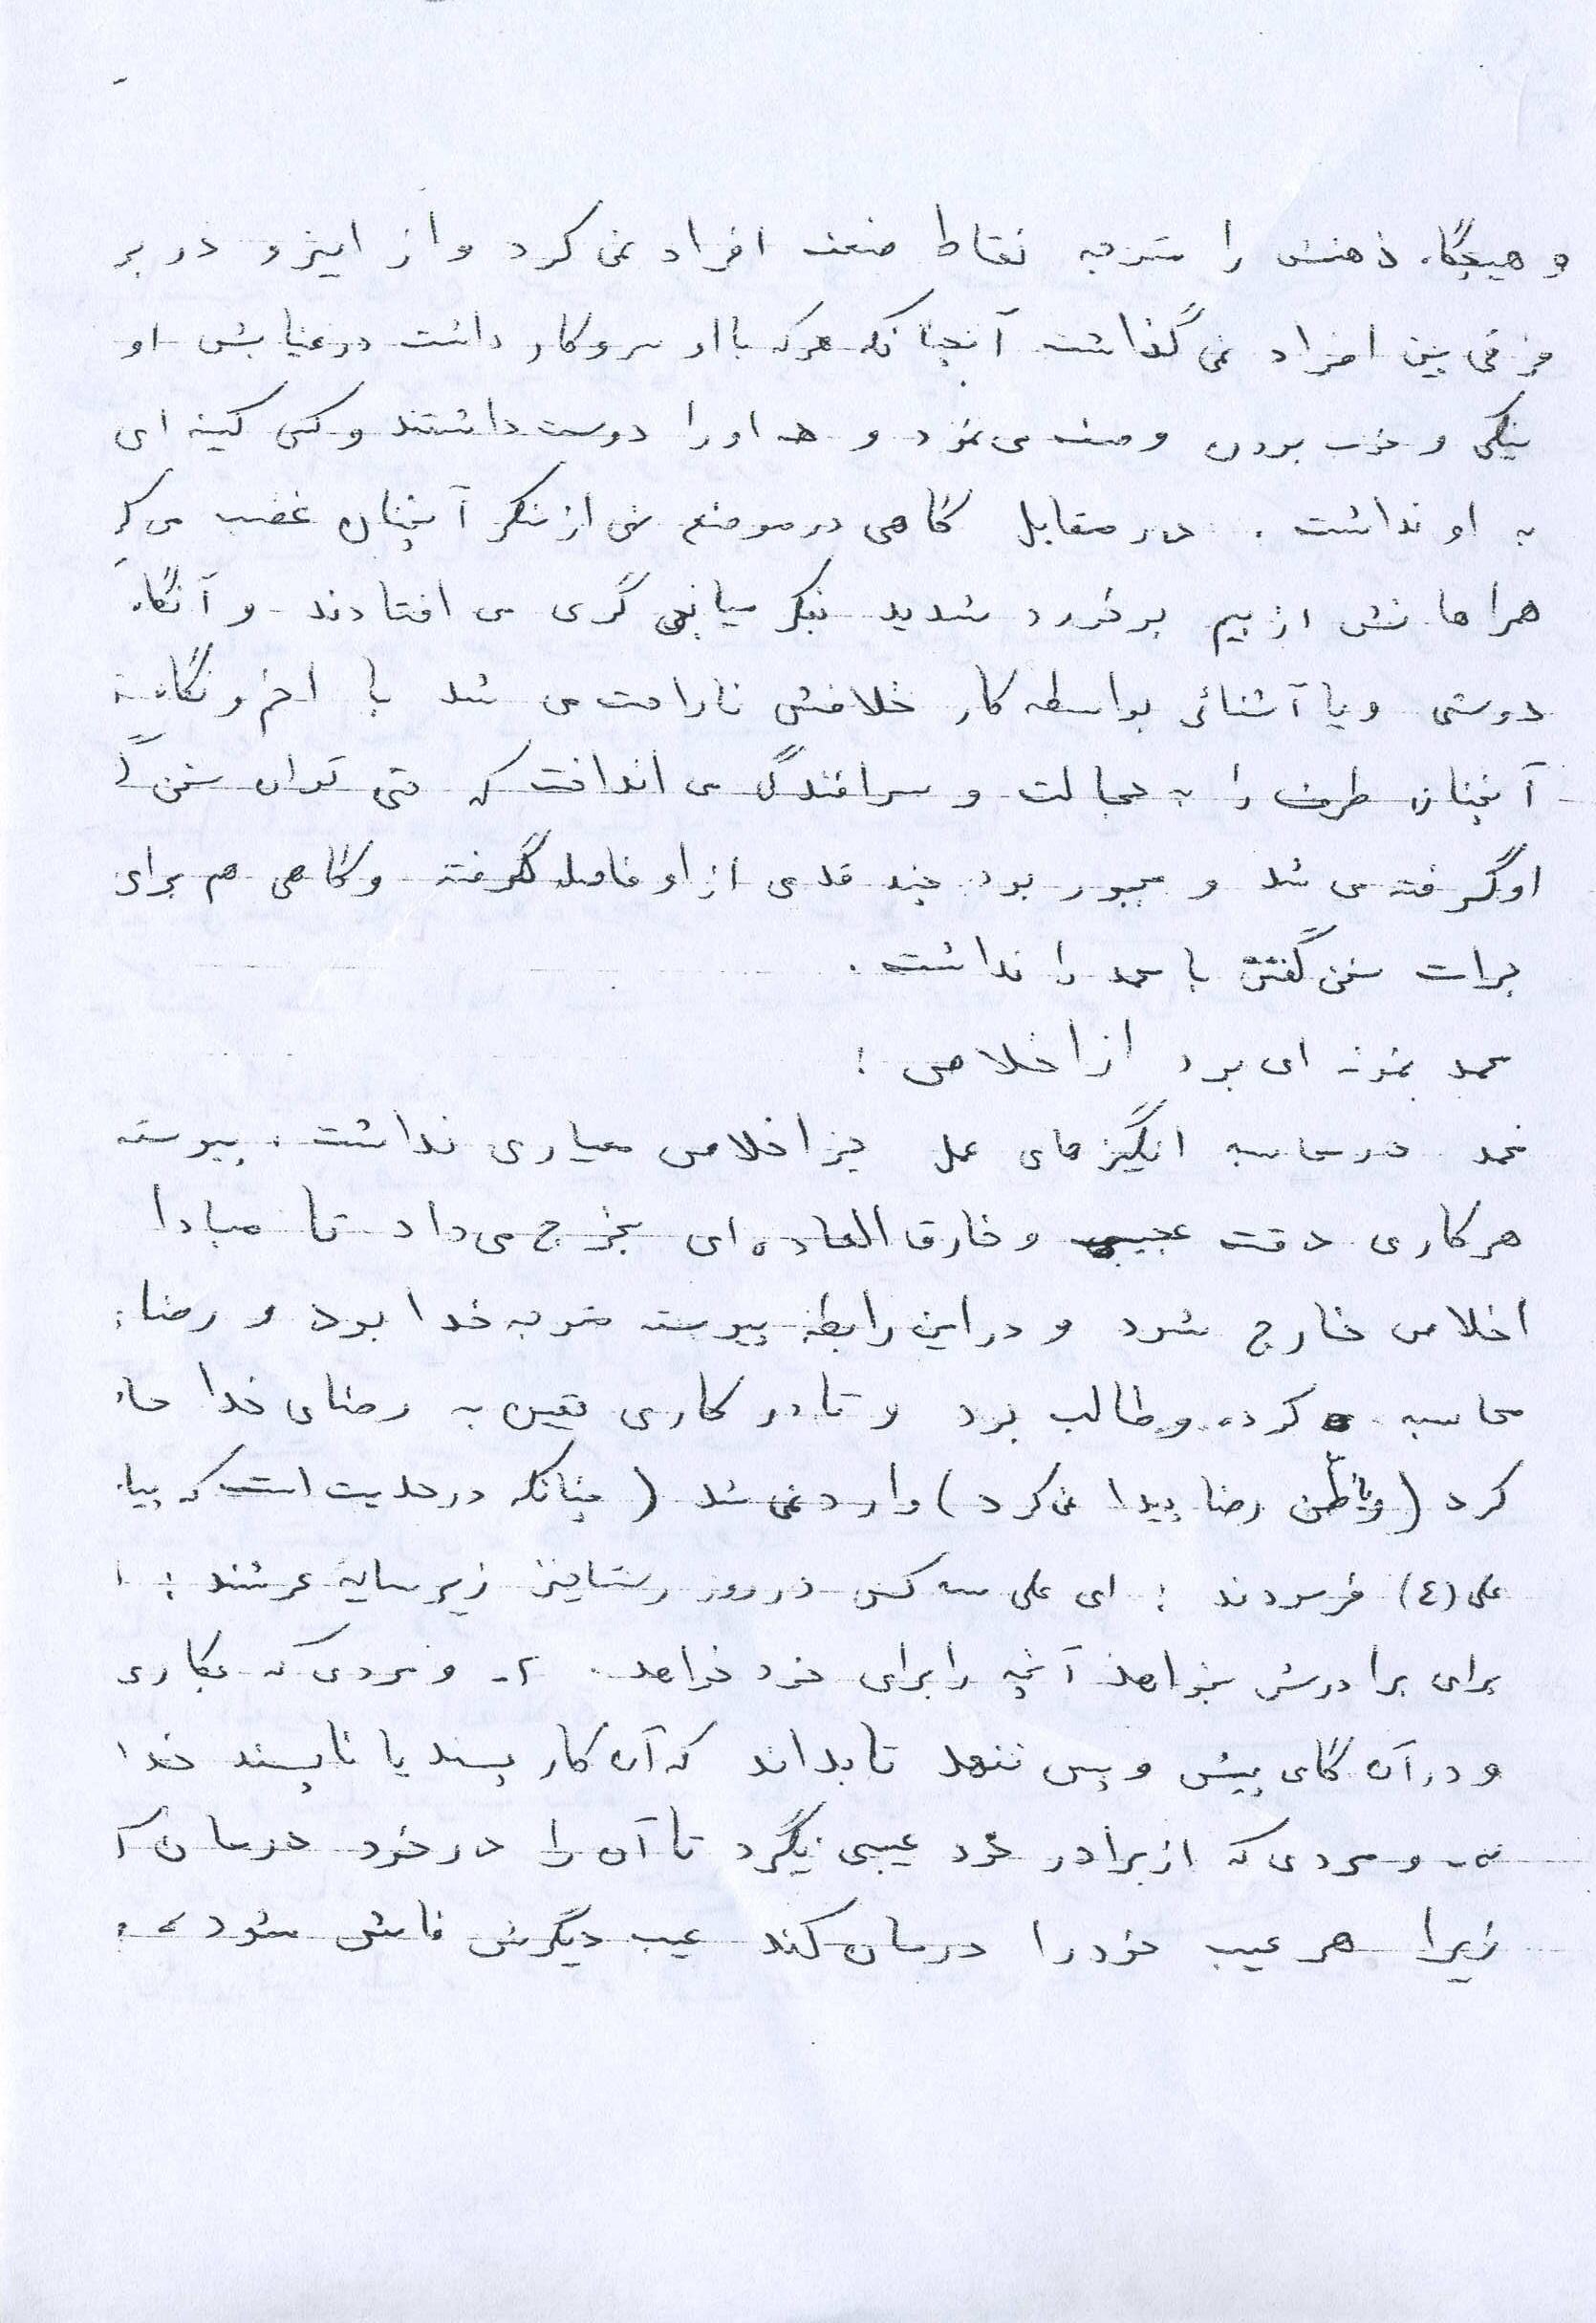 و هیچگاه ذهنش را متوجه نقاط ضعف افراد نمی کرد و از اینرو در بر
فرقی بین افراد نمی گذاشت آنچنانکه هرکه با او سروکار داشت در غیابش او
نیکی و خوب بودن وصف می نمود و همه او را دوست داشتند و کسی کینه ای
به او نداشت . در مقابل گاهی در موضع نهی از منکر آنچنان غضب می کر
همراهانش از بیم برخورد شدید بفکر میانجی گری می افتادند و آنگاه
دوستی و یا آشنائی بواسطه کار خلافش ناراحت می شد با اخم و نگاه
آنچنان طرف را به خجالت و سرافکندگی می انداخت که حتی توان سخن
او گرفته می شد و مجبور بود چند قدمی از او فاصله گرفته و گاهی هم برای
جرات سخن گفتن با محمد را نداشت .
محمد نمونه ای بود از اخلاص :
محمد در محاسبه انگیزه های عمل جز اخلاص معیاری نداشت . پیوسته
هر کاری دقت عجیب و خارق العاده ای بخرج می داد تا مبادا
اخلاص خارج شود و در این رابطه پیوسته متوجه خدا بود و رضا
محاسبه کرده و طالب بود و تا در کاری یقین به رضای خدا حا
کرد ( و یا ظن رضا پیدا نمی کرد ) وارد نمی شد ( چنانکه در حدیث است که پیا
علی (ع) فرمودند : ای علی سه کس در روز رستاخیز زیر سایه عرشند : ۱
برای برادرش بخواهد آنچه را برای خود خواهد . ۲- و مردی که بکاری
و در آن گامی پیش و پس ننهد تا بداند که آن کار پسند یا ناپسند خدا
و مردی که از برادر خود عیبی نگیرد تا آن را در خود درمان
زیرا هر عیب خود را درمان کند عیب دیگرش فاش شود